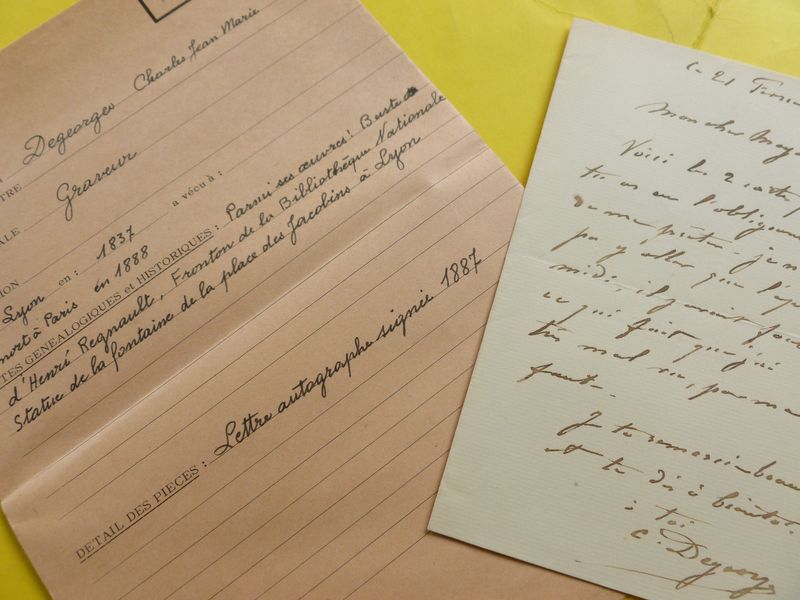 Degeorges Charles Jean Marie
TRE
Graveur
ALE
ION
Lyon en : 1837 a vécu à :
mort à Paris en 1888
TES GENEALOGIQUES et HISTORIQUES : Parmi ses œuvres : Buste
d'Henri Regnault, Fronton de la Bibliothèque Nationale
Statue de la fontaine de la place des Jacobins à Lyon
DETAIL DES PIECES : Lettre autographe signée 1887
21
mon cher
Voici la 2 carte
tu as eu l'obligeance
de me prêter. je n
pu y aller que l'ap
midi. il y avait foule
ce qui fait que j'ai
très mal vu, par ma
faute.
Je te remercie beauc
et te dis à bientôt.
à toi
C. Degeorge